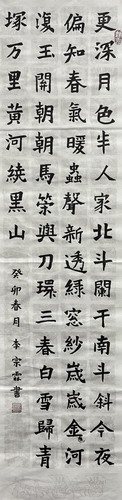 更深月色半人家北斗闌干南斗斜今夜
偏知春氣暖蟲聲新透綠窗紗歲歲金河
復玉關朝朝馬策與刀環三春白雪歸青
塚万里黃河繞黑山
癸卯春月 李宗霖書